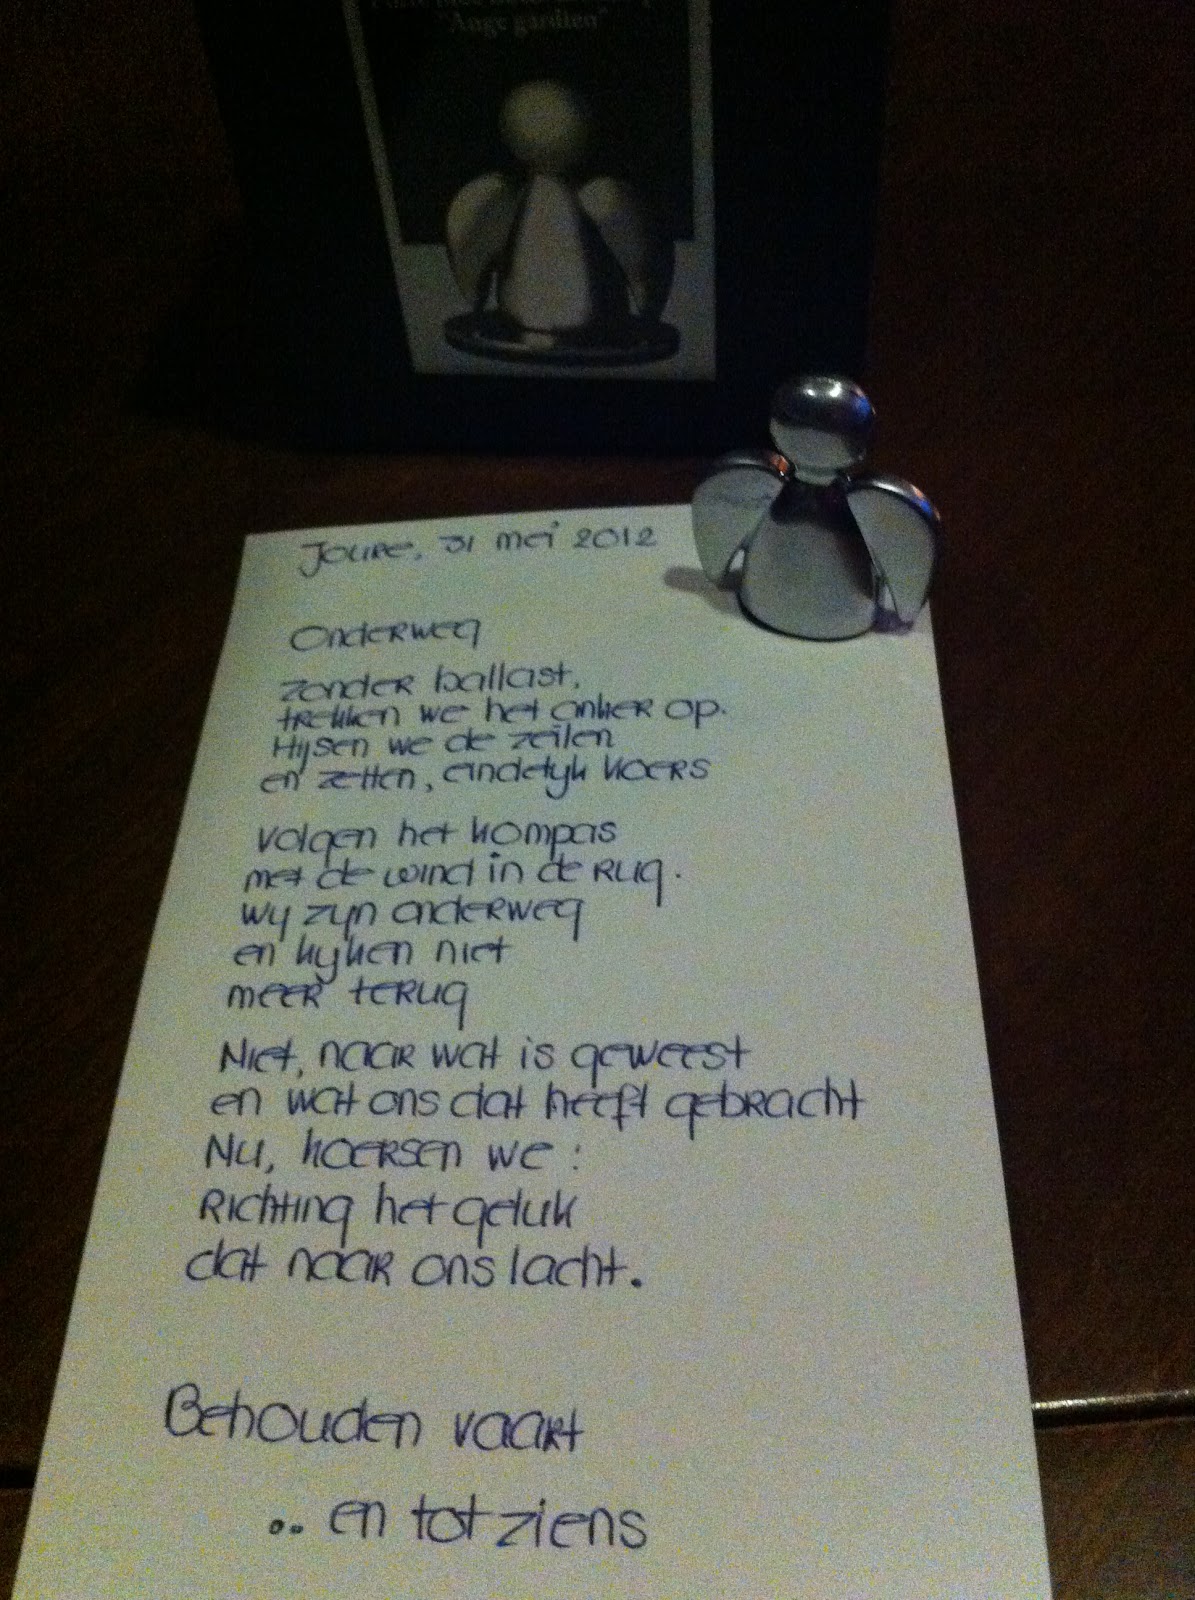 "Ange gardien"
Joure, 31 mei 2012
Onderweg
zonder ballast,
trekken we het anker op.
Hijsen we de zeilen
en zetten, eindelijk koers
Volgen het kompas
met de wind in de rug.
wij zijn onderweg
en kijken niet
meer terug
Niet, naar wat is geweest
en wat ons dat heeft gebracht
Nu, koersen we :
Richting het geluk
dat naar ons lacht.
Behouden vaart
.. en tot ziens